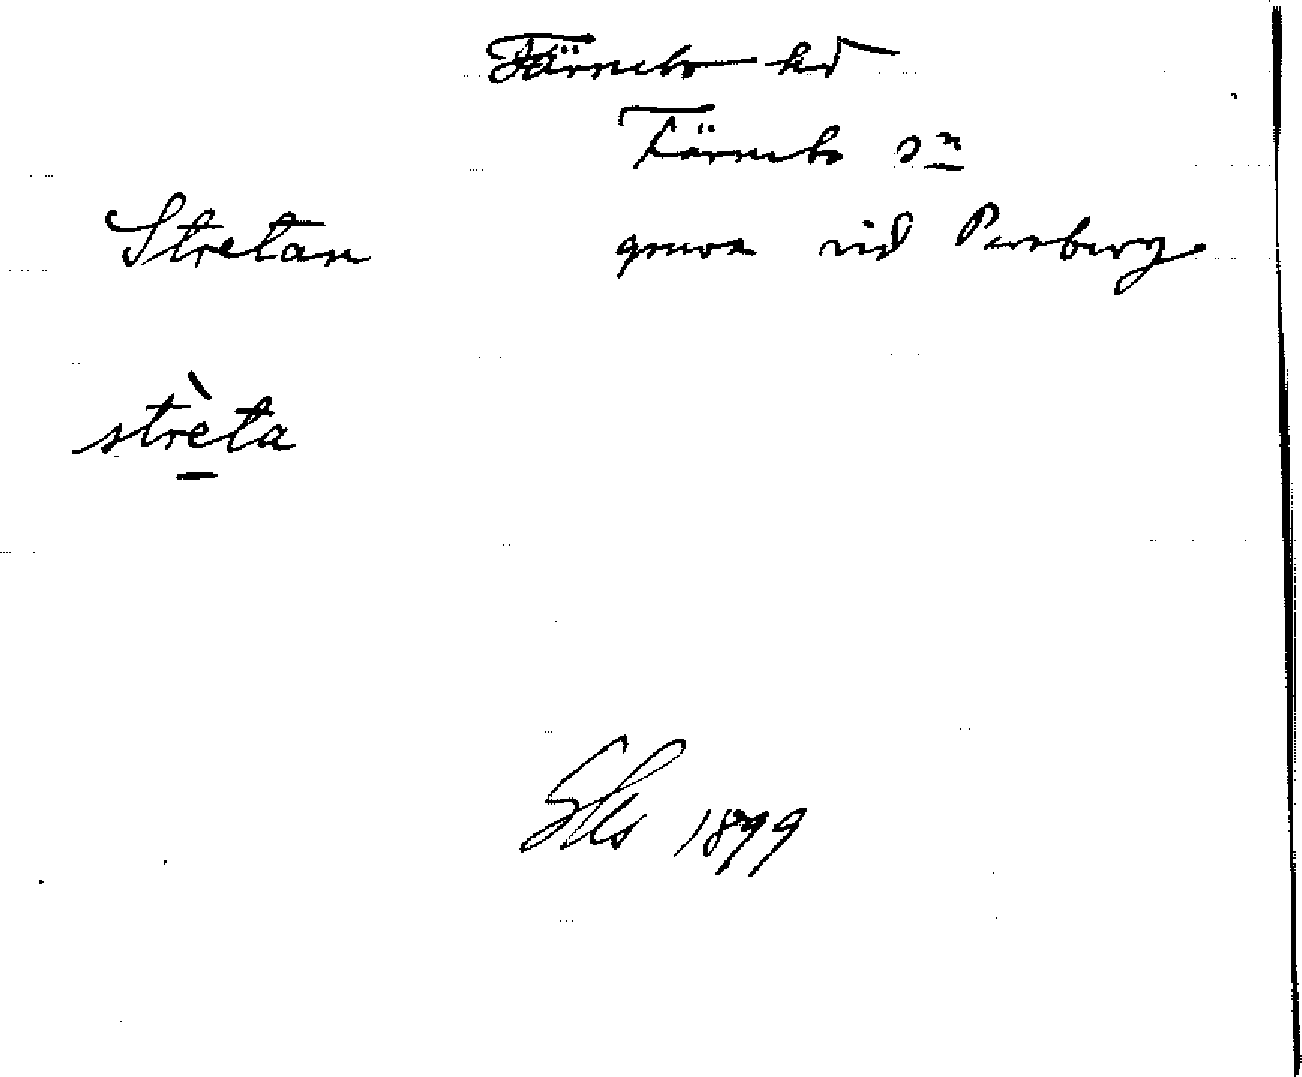 Färnebo hd
Färnebo sn
Stretan gruva vid Persberg
strèta
Sks 1899